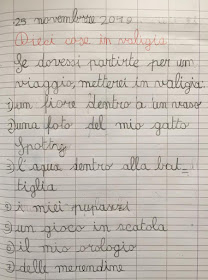 25 novembre 2019
Dieci cose in valigia
Se dovessi partirte per um
viaggio, metterei in valigia:
1) um fiore dentro a un vaso
2) una foto del mio gatto
Spotty
3) l'aqua dentro alla bot-
tiglia
4) i miei pupazzi
5) un gioco in scatola
6) il mio orologio
7) delle merendine